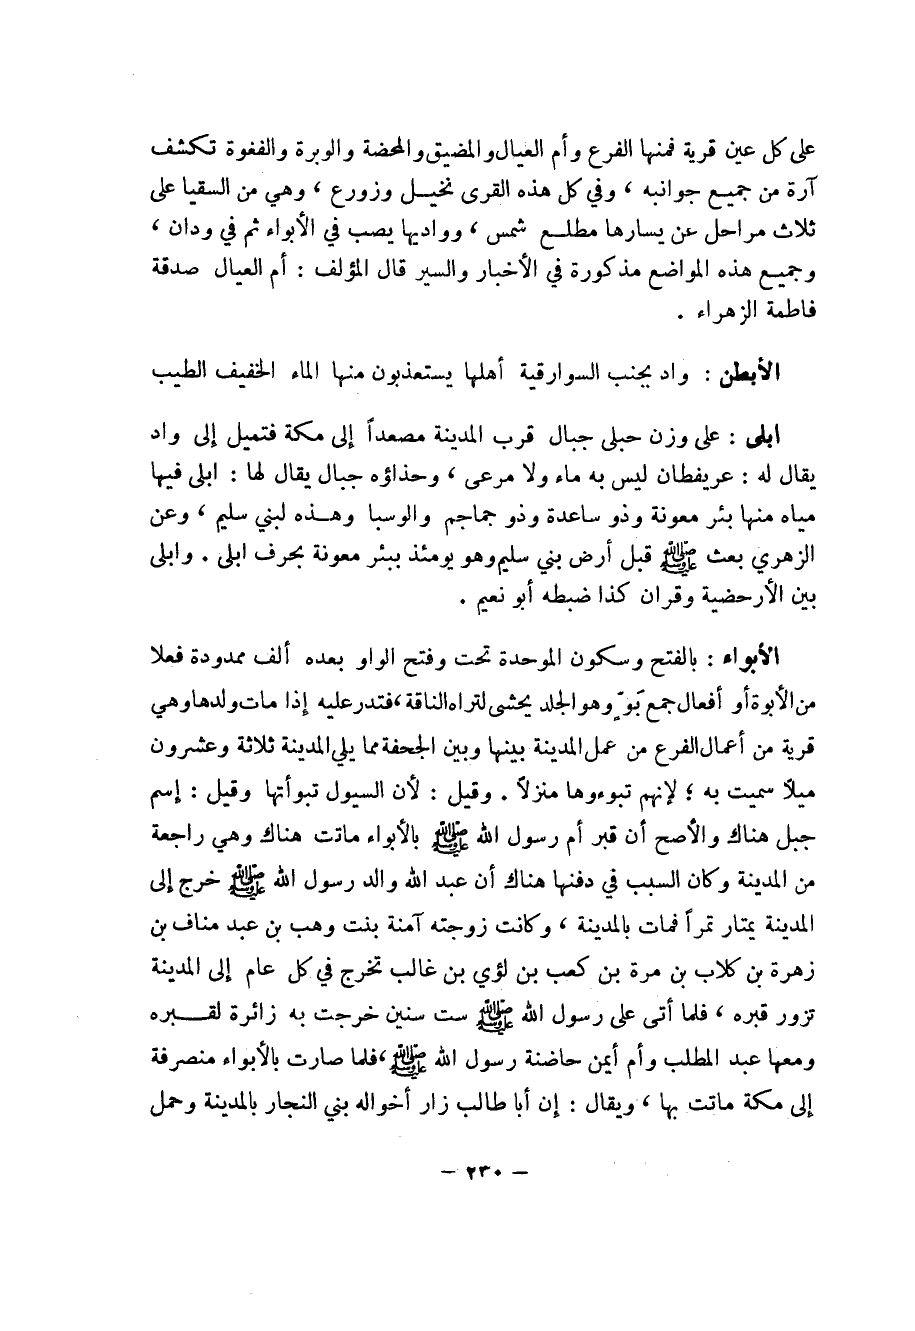 على كل عين قرية فمنها الفرع وأم العيال والمضيق والمحضة والوبرة والفغوة تكشف
آرة من جميع جوانبه ، وفي كل هذه القرى نخيل وزورع ، وهي من السقيا على
ثلاث مراحل عن يسارها مطلع شمس ، وواديها يصب في الأبواء ثم في ودان ،
وجميع هذه المواضع مذكورة في الأخبار والسير قال المؤلف : أم العيال صدقة
فاطمة الزهراء .
الأبطن : واد بجنب السوارقية أهلها يستعذبون منها الماء الخفيف الطيب
ابلى : على وزن حبلى جبال قرب المدينة مصعداً إلى مكة فتميل إلى واد
يقال له : عريفطان ليس به ماء ولا مرعى ، وحذاؤه جبال يقال لها : ابلى فيها
مياه منها بئر معونة وذو ساعدة وذو جماجم والوسبا وهذه لبني سليم ، وعن
الزهري بعث ﷺ قبل أرض بني سليم وهو يومئذ ببئر معونة بجرف ابلى . وابلى
بين الأرحضية وقران كذا ضبطه أبو نعيم .
الأبواء : بالفتح وسكون الموحدة تحت وفتح الواو بعده ألف ممدودة فعلا
من الأبوة أو أفعال جمع بَوّ وهو الجلد يحشى لتراه الناقة ، فتدر عليه إذا مات ولدها وهي
قرية من أعمال الفرع من عمل المدينة بينها وبين الجحفة مما يلي المدينة ثلاثة وعشرون
ميلاً سميت به ؛ لإنهم تبوءوها منزلاً . وقيل : لأن السيول تبوأتها وقيل : إسم
جبل هناك والأصح أن قبر أم رسول الله ﷺ بالأبواء ماتت هناك وهي راجعة
من المدينة وكان السبب في دفنها هناك أن عبد الله والد رسول الله ﷺ خرج إلى
المدينة يمتار تمراً فمات بالمدينة ، وكانت زوجته آمنة بنت وهب بن عبد مناف بن
زهرة بن كلاب بن مرة بن كعب بن لؤي بن غالب تخرج في كل عام إلى المدينة
تزور قبره ، فلما أتى على رسول الله ﷺ ست سنين خرجت به زائرة لقبره
ومعها عبد المطلب وأم أيمن حاضنة رسول الله ﷺ ، فلما صارت بالأبواء منصرفة
إلى مكة ماتت بها ، ويقال : إن أبا طالب زار أخواله بني النجار بالمدينة وحمل
– ٢٣٠ –